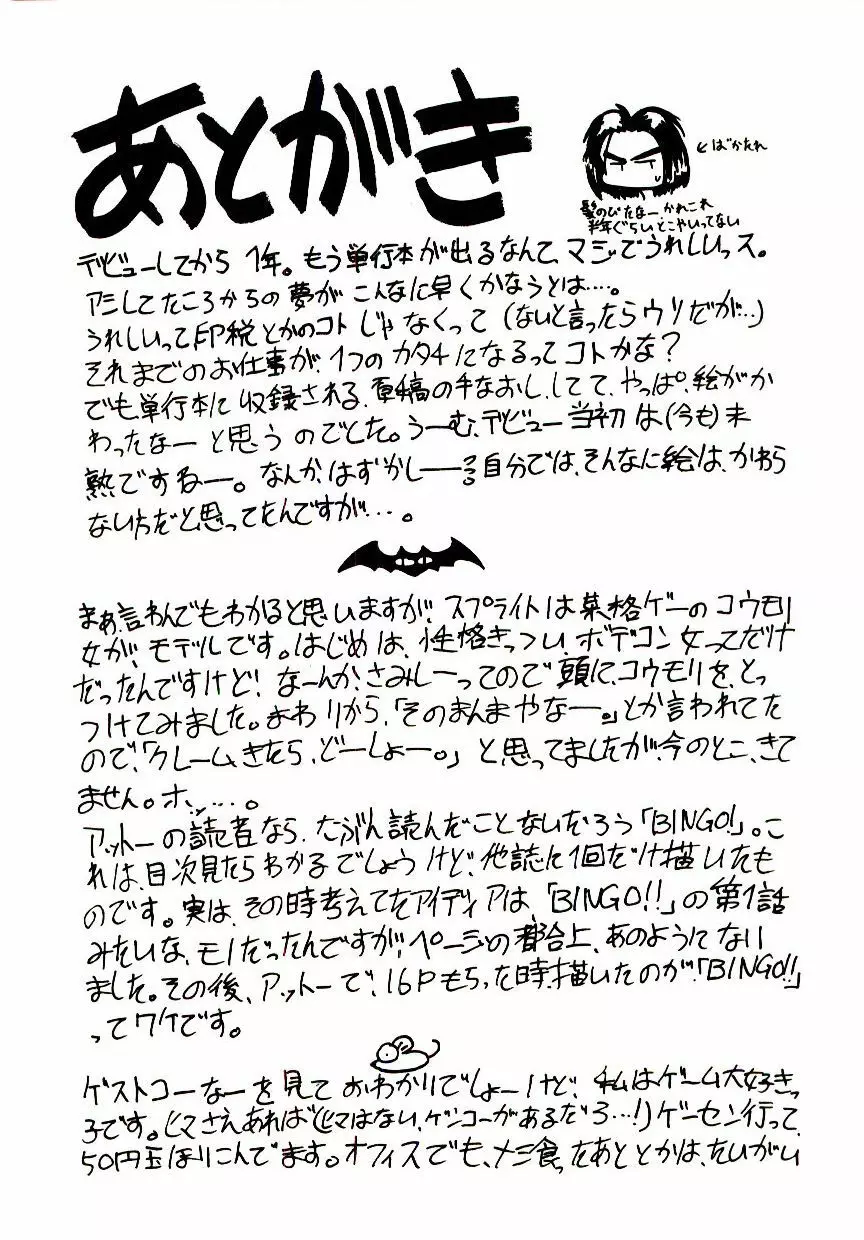 あとがき
←ばかたれ
髪のびたなー。かれこれ
半年ぐらいとこやいってない
デビューしてから1年。もう単行本が出るなんて、マジでうれしいっス。
アシしてたころからの夢がこんなに早くかなうとは…。
うれしいって印税とかのコトじゃなくって(ないと言ったらウソだが…)
それまでのお仕事が、1つのカタチになるってコトかな？
でも、単行本に収録される、原稿の手なおし、してて、やっぱ。絵がか
わったなーと思うのでした。うーむ、デビュー当初は(今も)未
熟ですねー。なんか、はずかしーっ。自分では、そんなに絵は、かわら
ない方だと思ってたんですが…。
まぁ、言わんでもわかると思いますが、スプライトは某格ゲーのコウモリ
女が、モデルです。はじめは、性格きっつい、ボデコン女ってだけ
だったんですけど、なーんか、さみしーってので頭に、コウモリを、とっ
つけてみました。まわりから、「そのまんまやなー。」とか言われてた
ので、「クレーム、きたら、どーしょー。」と思ってましたが、今のとこ、きて
ません。ホッ…。
アットーの読者なら、たぶん読んだことないだろう「BINGO!」。こ
れは、目次見たらわかるでしょうけど、他誌に1回だけ描いたも
のです。実は、その時考えてたアイディアは、「BINGO!!」の第1話
みたいな、モノだったんですが、ページの都合上、あのようになり
ました。その後、アットーで、16Pもらった時、描いたのが、「BINGO!!」
ってワケです。
ゲストコーなーを見ておわかりでしょーけど、私はゲーム大好きっ
子です。ヒマさえあれば(ヒマはない、ゲンコーがあるだろ…!)ゲーセン行って、
50円玉ほりこんでます。オフィスでも、メシ食ったあととかは、たいがい